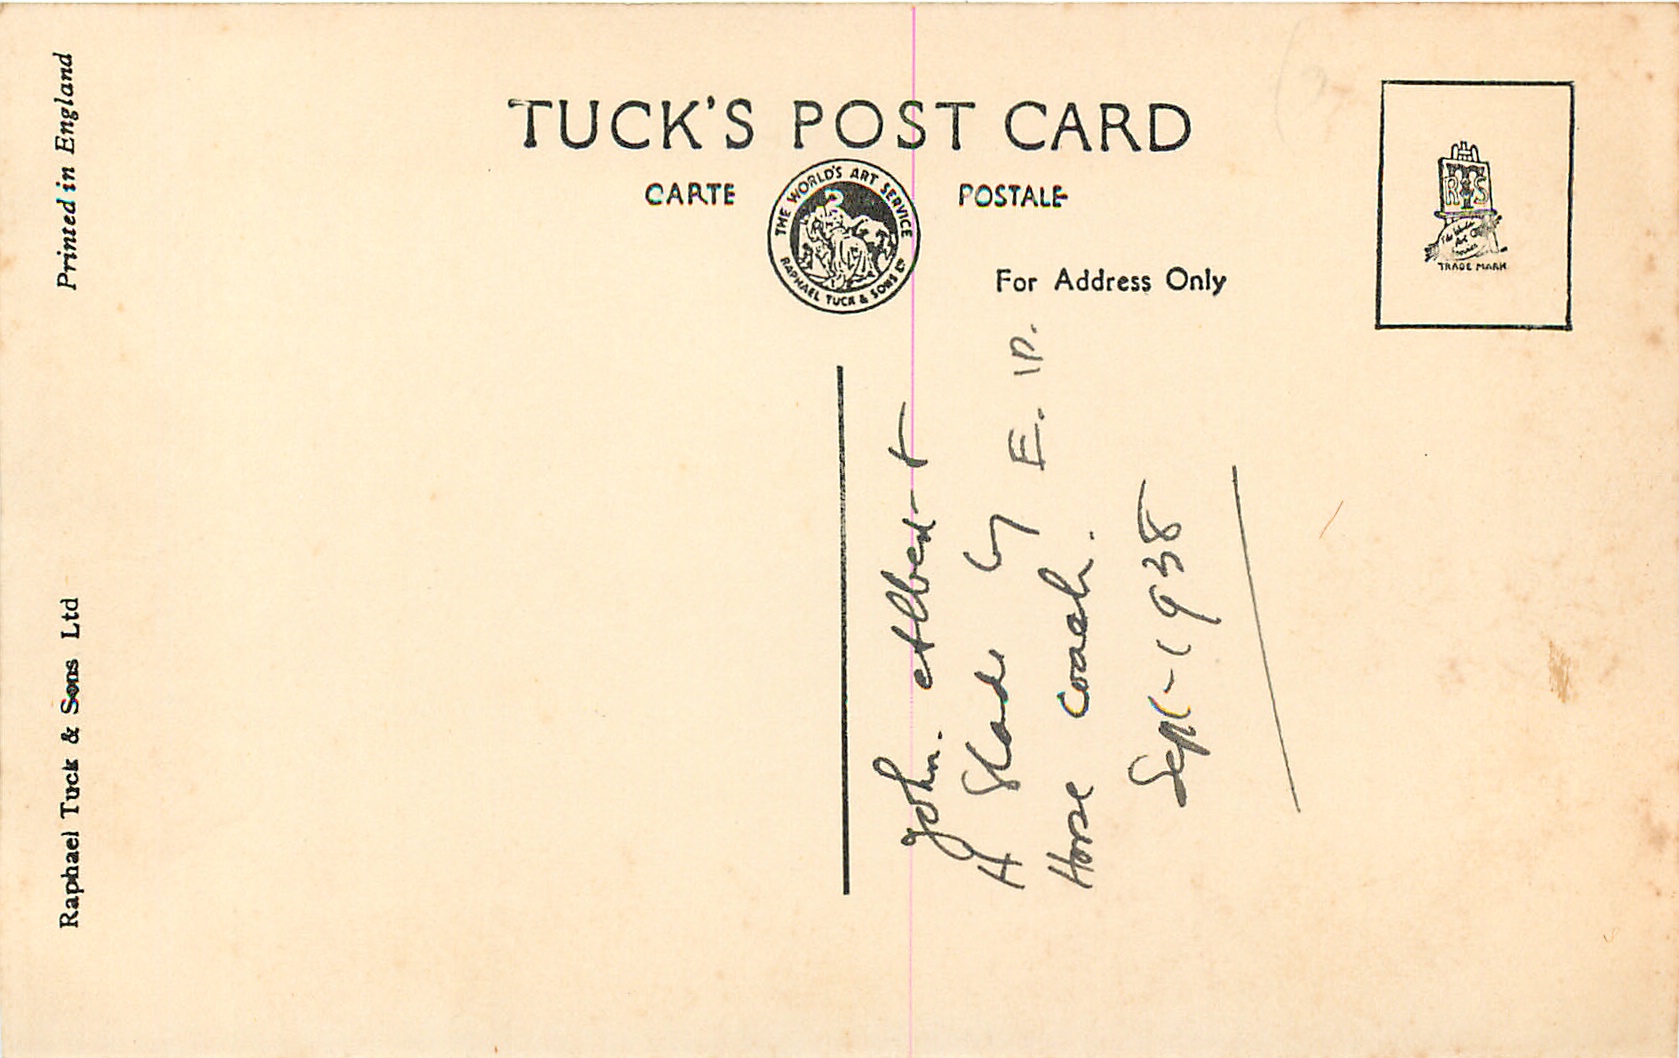 TUCK'S POST CARD
CARTE POSTALE
THE WORLD'S ART SERVICE
RAPHAEL TUCK & SONS LD
For Address Only
R T S
The World's
Art
Service
TRADE MARK
Printed in England
Raphael Tuck & Sons Ltd
John. Albert
H Slade by E. W.
Horse Coach.
Sept - 1938